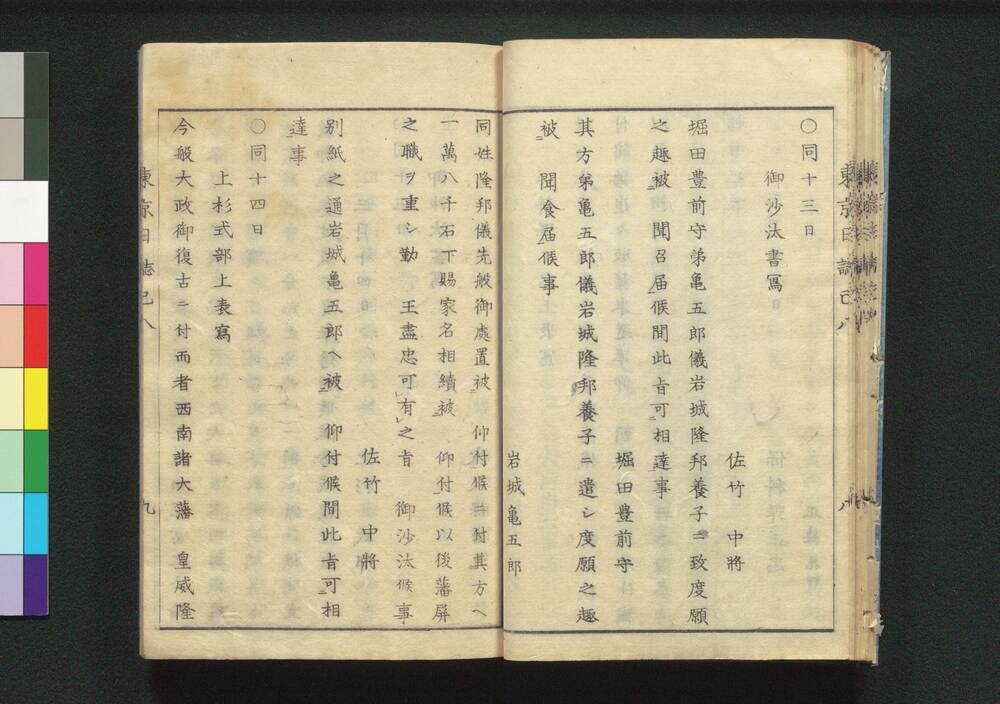 〇同十三日
御沙汰書冩
佐竹 中將
堀田豊前守弟亀五郎儀岩城隆邦養子ニ致度願
之趣被 聞召届候間此旨可相達事
堀田豊前守
其方弟亀五郎儀岩城隆邦養子ニ遣シ度願之趣
被 聞食届候事
岩城亀五郎
同姓隆邦儀先般御處置被 仰付候ニ付其方へ
一萬八千石下賜家名相續被 仰付候以後藩屏
之職ヲ重シ勤 王盡忠可有之旨 御沙汰候事
佐竹 中將
別紙之通岩城亀五郎へ被 仰付候間此旨可相
達事
〇同十四日
上杉式部上表寫
今般大政御復古ニ付而者西南諸大藩 皇威隆
東京日誌己八 九